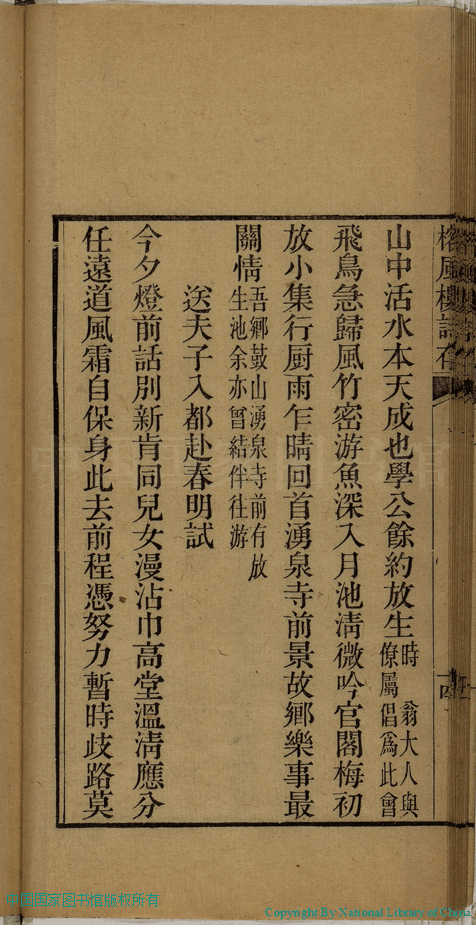 榕風樓詩存
山中活水本天成也學公餘約放生時 翁大人與僚屬倡爲此會
飛鳥急歸風竹密游魚深入月池清微吟官閣梅初
放小集行厨雨乍晴回首湧泉寺前景故鄉樂事最
關情吾鄉鼓山湧泉寺前有放生池余亦曾結伴往游
送夫子入都赴春明試
今夕燈前話別新肯同兒女漫沾巾高堂溫凊應分
任遠道風霜自保身此去前程憑努力暫時歧路莫
中国国家图书馆版权所有
Copyright By National Library of China